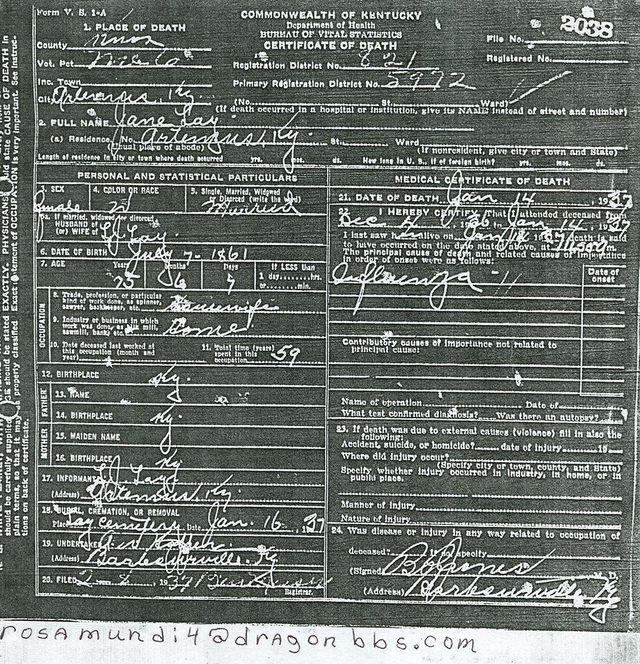 Form V. S. 1-A
COMMONWEALTH OF KENTUCKY
Department of Health
BUREAU OF VITAL STATISTICS
CERTIFICATE OF DEATH
2038
1. PLACE OF DEATH
County Knox
File No.
Registered No.
Vot. Pct.
Registration District No. 821
Inc. Town
Primary Registration District No. 5972
City Artemus, Ky (No. St. Ward)
(If death occurred in a hospital or institution, give its NAME instead of street and number)
2. FULL NAME Jane Lay
(a) Residence. No. Artemus, Ky. St. Ward
(Usual place of abode) (If nonresident, give city or town and State)
Length of residence in city or town where death occurred yrs. mos. ds. How long in U. S., if of foreign birth? yrs. mos. ds.
PERSONAL AND STATISTICAL PARTICULARS
3. SEX 4. COLOR OR RACE 5. Single, Married, Widowed or Divorced (write the word)
W Married
5a. If married, widowed or divorced
HUSBAND of
(or) WIFE of Lay
6. DATE OF BIRTH July 7 - 1861
7. AGE Years Months Days If LESS than
75 6 7 1 day, hrs.
or min.
OCCUPATION
8. Trade, profession, or particular kind of work done, as spinner, sawyer, bookkeeper, etc. Housewife
9. Industry or business in which work was done, as silk mill, sawmill, bank, etc.
10. Date deceased last worked at this occupation (month and year)
11. Total time (years) spent in this occupation 59
12. BIRTHPLACE Ky.
FATHER
13. NAME
14. BIRTHPLACE Ky
MOTHER
15. MAIDEN NAME
16. BIRTHPLACE Ky
17. INFORMANT Lay
(Address) Artemus, Ky.
18. BURIAL, CREMATION, OR REMOVAL
Place Lay Cemetery Date Jan. 16 1937
19. UNDERTAKER
(Address) Barbourville, Ky
20. FILED 1937
Registrar.
MEDICAL CERTIFICATE OF DEATH
21. DATE OF DEATH Jan 14, 1937
22. I HEREBY CERTIFY, That I attended deceased from
Dec 1936 to Jan 14, 1937
I last saw her alive on Jan 1937, death is said
to have occurred on the date stated above, at
The principal cause of death and related causes of importance
in order of onset were as follows:
Date of onset
Influenza - 11
Contributory causes of importance not related to
principal cause:
Name of operation Date of
What test confirmed diagnosis? Was there an autopsy?
23. If death was due to external causes (violence) fill in also the
following:
Accident, suicide, or homicide? date of injury 19
Where did injury occur?
(Specify city or town, county, and State)
Specify whether injury occurred in industry, in home, or in
public place.
Manner of injury
Nature of injury
24. Was disease or injury in any way related to occupation of
deceased? If so, specify
(Signed) M. D.
(Address) Barbourville, Ky
rosamundi4@dragonbbs.com